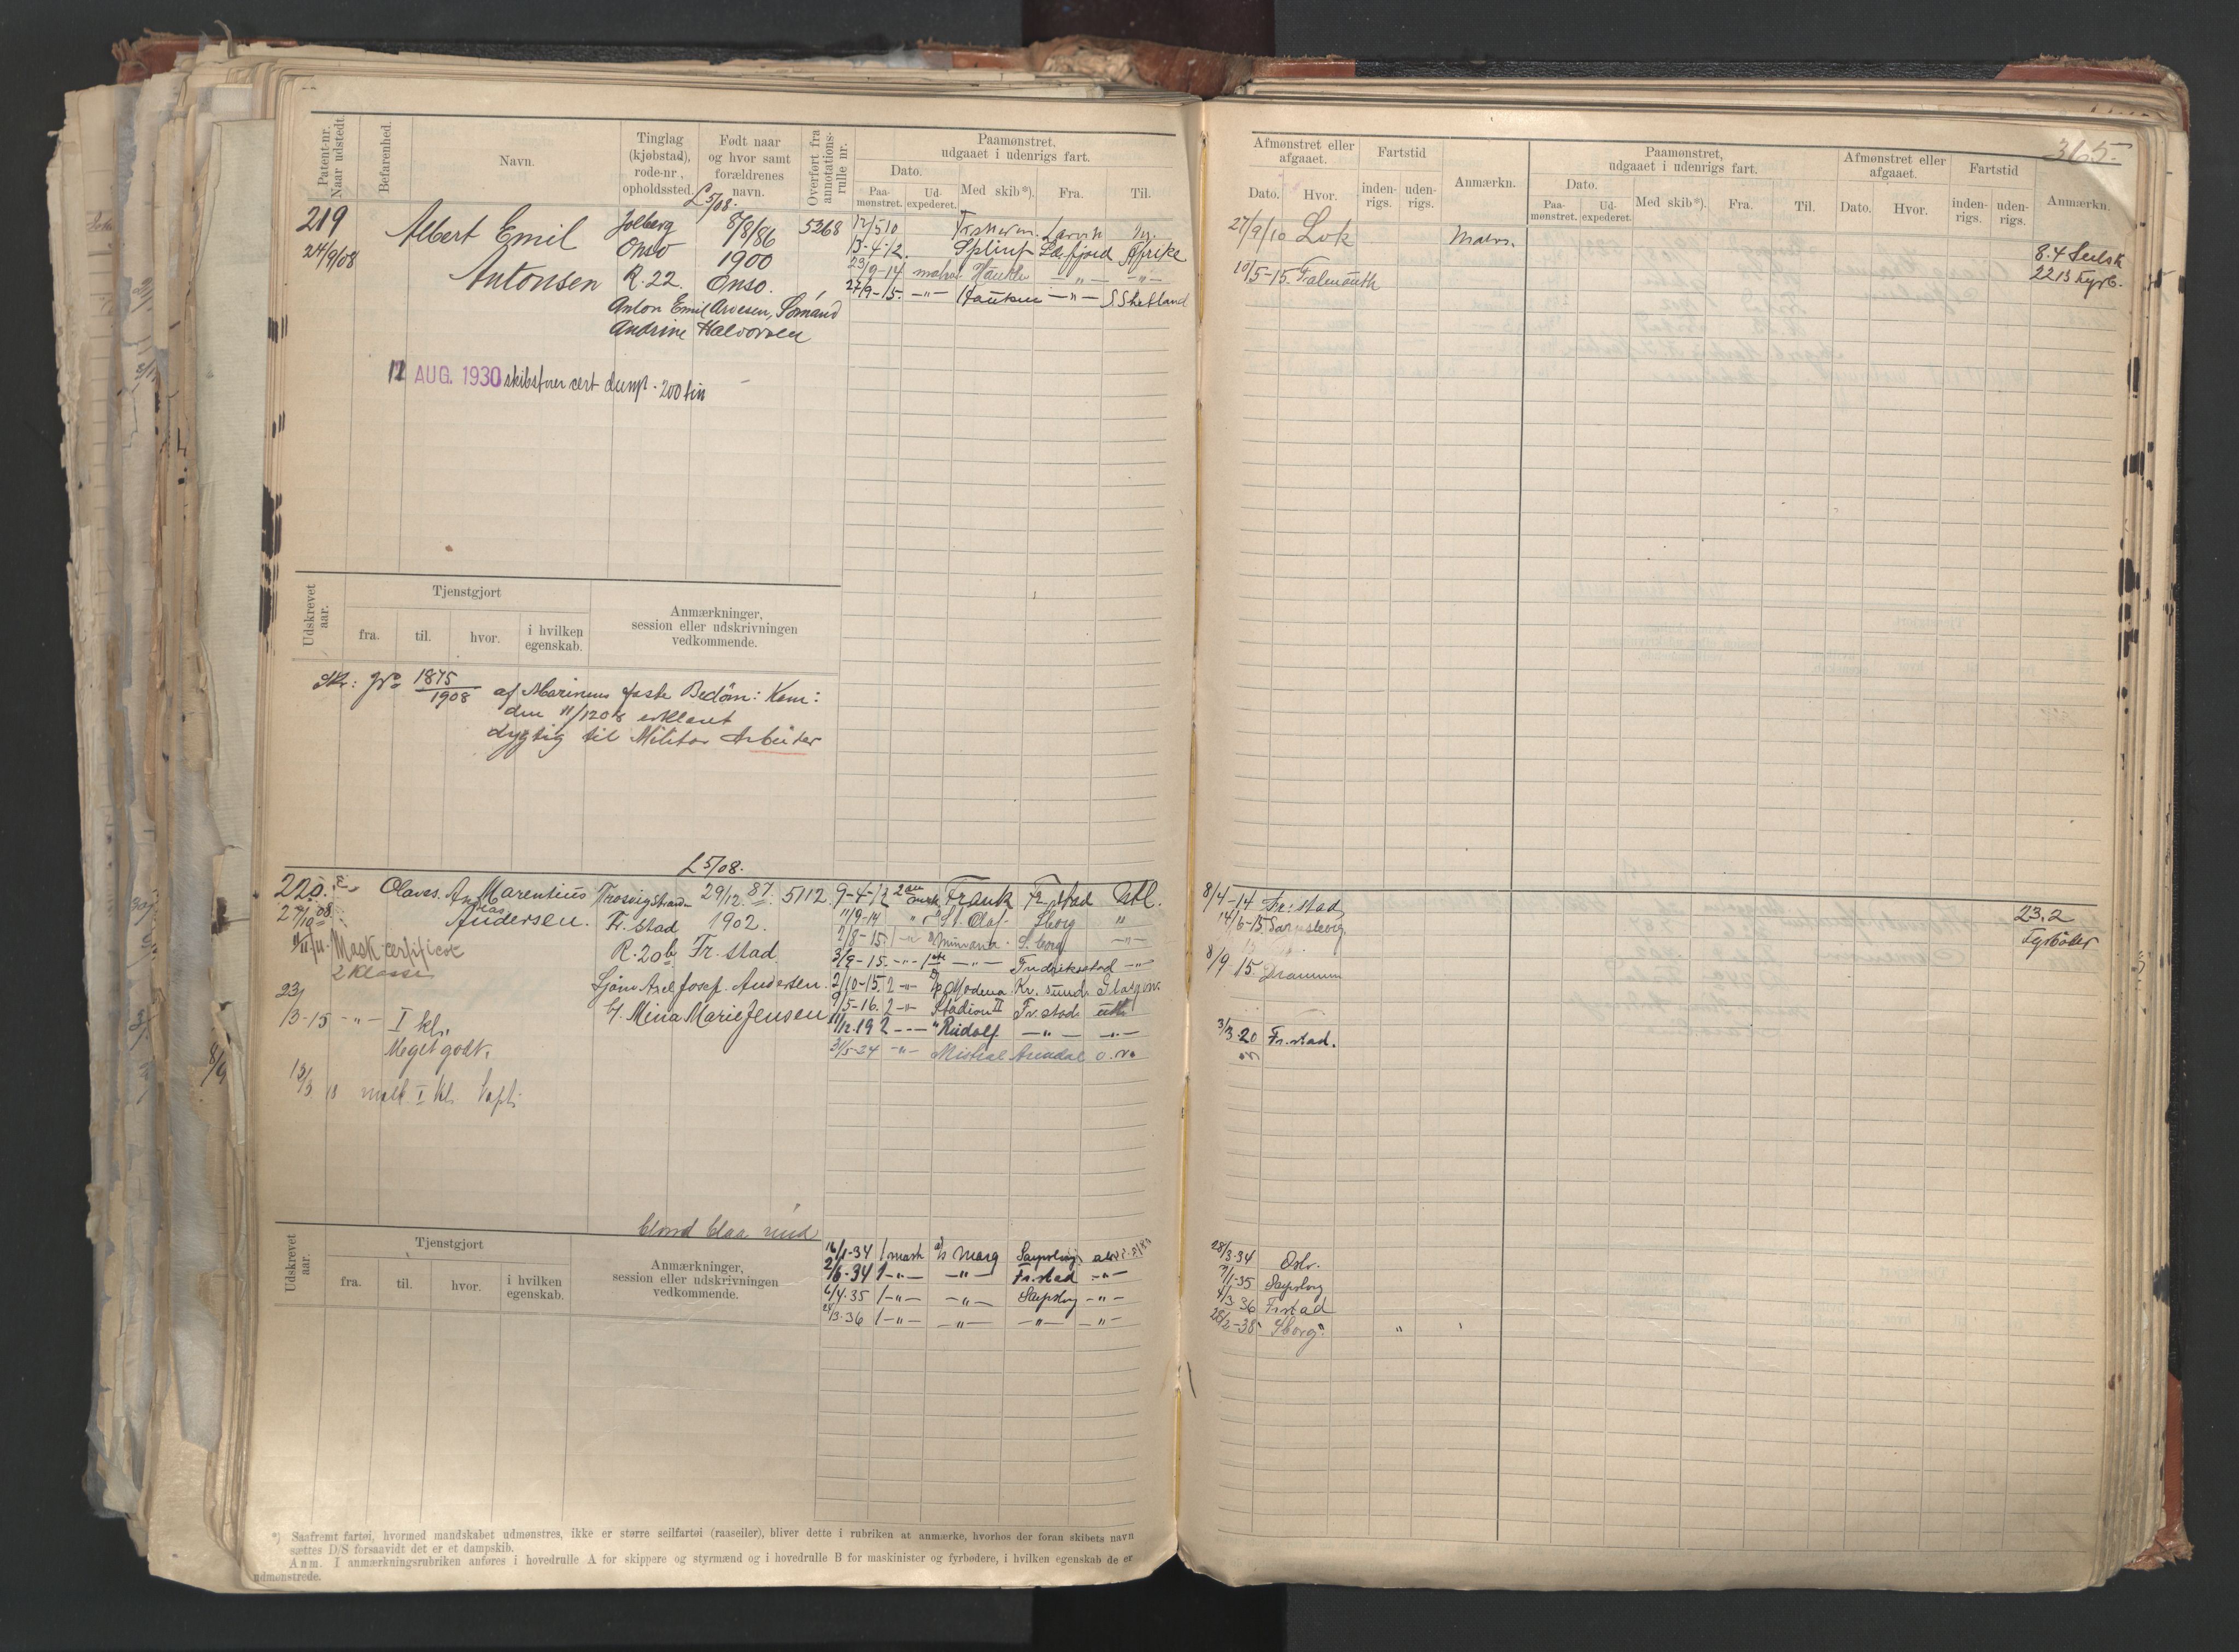 365.
Patent-nr. Naar udstedt.
Befarenhed.
Navn.
Tinglag (kjøbstad), rode-nr, opholdssted.
Født naar og hvor samt forældrenes navn.
Overført fra annotations-rulle nr.
Paamønstret, udgaaet i udenrigs fart.
Dato.
Paa-mønstret.
Ud-expederet.
Med skib*).
Fra.
Til.
Afmønstret eller afgaaet.
Dato.
Hvor.
Fartstid
inden-rigs.
uden-rigs.
Anmærkn.
Paamønstret, udgaaet i udenrigs fart.
Dato.
Paa-mønstret.
Ud-expederet.
Med skib*).
Fra.
Til.
Afmønstret eller afgaaet.
Dato.
Hvor.
Fartstid
inden-rigs.
uden-rigs.
Anmærkn.
£ 5/08.
219
24/9/08
Albert Emil
Antonsen
Onsø
R. 22.
8/8/86
1900
Onsø.
5268
Anton Emil Arvesen, Sømand
Andrine Halvorsen
12/5 10 Larvik
13-4-12. Afrike
23/9-14 -"- -"-
27/9-15. -"- -"- S Shetland
27/9/10 Lok
10/5-15. Falmouth
8.4 Seilsk
22 13 Fyrb.
12 AUG. 1930 skibsfører cert damp - 200 tn
Udskrevet aar.
Tjenstgjort
fra.
til.
hvor.
i hvilken egenskab.
Anmærkninger, session eller udskrivningen vedkommende.
Skr: No 1875/1908 af Marinens faste Bedøm: Kom:
den 11/12 08 erklæret
dygtig til Militær Arbeider
£ 5/08.
220.
27/10 08
Olaves Marentius
Andersen.
Trosvigstrand
Fr. stad
R. 20b
29/12. 87.
1902.
Fr. stad
5112
Sjøm Axel Josef Andersen.
H. Mina Marie Jensen
Mask-certificat
2 Klasse
23/3-15 -"- I kl.
Meget godt.
9-4-12 Frank Fr. stad Utl.
11/9-14 St. Olaf Sborg "
7/8-15. S. borg -"-
3/9-15. -"- Fredriksstad -"-
2/10-15. 2 -"- Modena Kr. sund. Glasgow.
9/5-16. 2 -"- Stadion II Fr. stad utl
11/12.19 2 -"- Rudolf -"- -"-
31/5-34 -"- Mistral Arendal
8/4-14 Fr: stad
14/6-15. Sarpsborg.
8/9 15 Drammen
3/3 20 Fr. stad.
23.2
Fyrbøder
blond blaa
Udskrevet aar.
Tjenstgjort
fra.
til.
hvor.
i hvilken egenskab.
Anmærkninger, session eller udskrivningen vedkommende.
16/1-34 1 mask d/s Marg Sarpsborg
2/6-34 1 -"- -"- Fr. stad -"-
6/4-35 1 -"- -"- Sarpsborg -"-
24/3-36 1 -"- -"- -"- -"-
28/3-34 Oslo.
7/1-35 Sarpsborg
4/3 36 Frstad
28/2-38 Sborg.
*) Saafremt fartøi, hvormed mandskabet udmønstres, ikke er større seilfartøi (raaseiler), bliver dette i rubriken at anmærke, hvorhos der foran skibets navn
sættes D/S forsaavidt det er et dampskib.
Anm. I anmærkningsrubriken anføres i hovedrulle A for skippere og styrmænd og i hovedrulle B for maskinister og fyrbødere, i hvilken egenskab de er
udmønstrede.